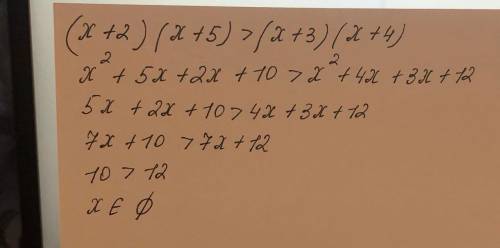 (x+2)(x+5)>(x+3)(x+4)
x²+5x+2x+10>x²+4x+3x+12
5x+2x+10>4x+3x+12
7x+10>7x+12
10>12
x∈∅